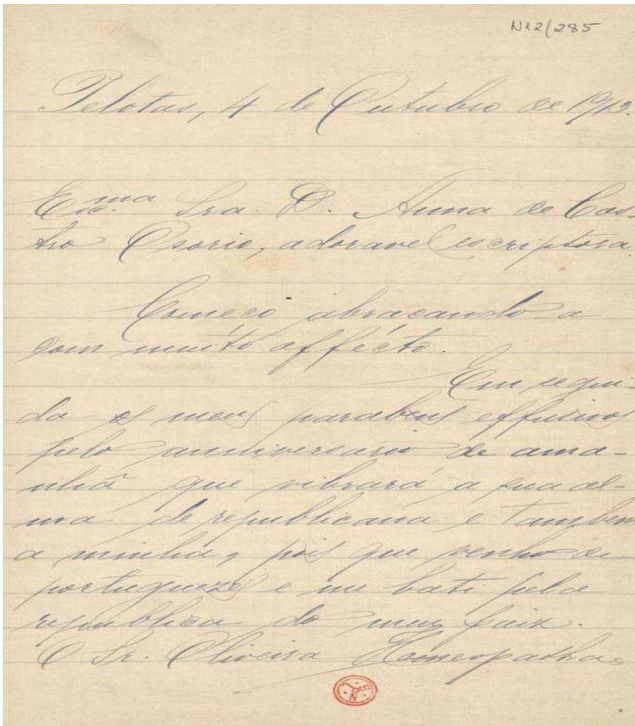 N12/285
Pelotas, 4 de Outubro de 1912.
Exma. Sra. D. Anna de Cas-
tro Osorio, adoravel escriptora.
Começo abraçando-a
com muito affécto.
Em segui-
da os meus parabens effusivos
pelo anniversario de ama-
nhã que vibrará a sua al-
ma de republicana e tambem
a minha, pois que venho de
portuguezes e me bati pela
republica do meu paiz.
O Sr. Oliveira Homeopatha